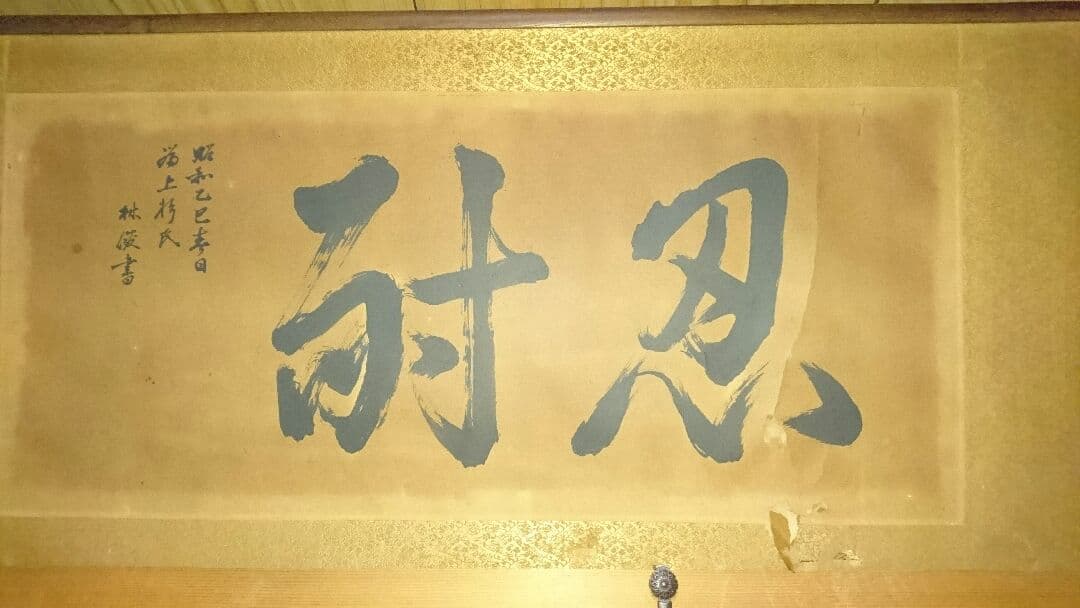 忍耐
昭和乙巳春日
為上杉氏
林俊書